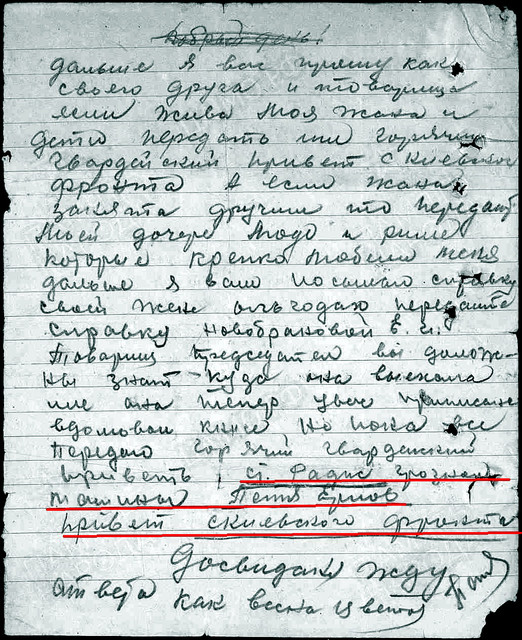 Добрый день!
дальше я вас прошу как
своего друга и товарища
если жива моя жана и
дети передать им горячий
гвардейский привет с киевского
фронта А если жана
занята другим то передайт
моей дочере Люде и
которые крепко любили меня
дальше я вам посылаю справку
своей жене передайте
справку Новобрановой Е. И.
Товарищ председател вы долж-
ны знат куда она выехала
или она тепер увас прописане
вдомовой книге Но пока все
Передаю горячий гвардейский
Привет, ст. Радис грозной
машины Петя
привет скиевского фронта
Досвидани жду
ответа как весна цветов